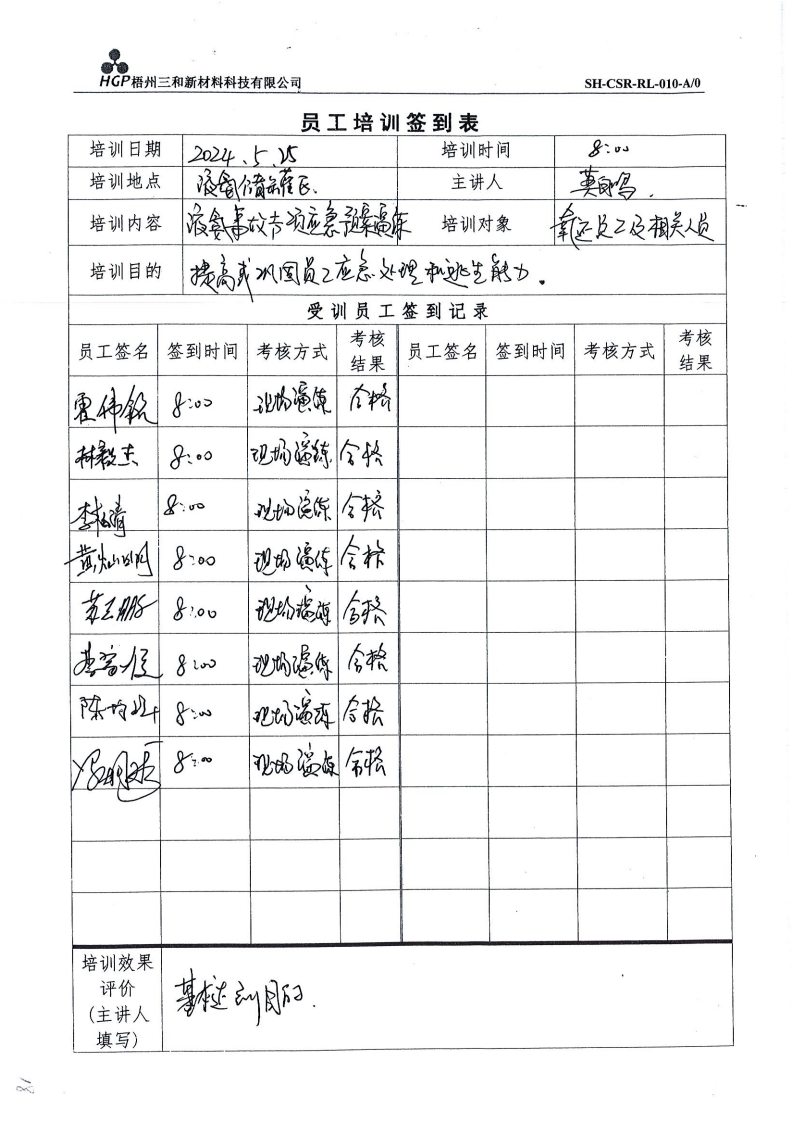 HGP梧州三和新材料科技有限公司 SH-CSR-RL-010-A/0
员工培训签到表
培训日期 2024.5.25 培训时间 8:00
培训地点 液氨储罐区. 主讲人
培训内容 液氨事故专项应急预案演练 培训对象 氨运员工及相关人员
培训目的 提高或巩固员工应急处理和逃生能力.
受训员工签到记录
员工签名 签到时间 考核方式 考核结果 员工签名 签到时间 考核方式 考核结果
霍伟铭 8:00 现场演练 合格
林毅杰 8:00 现场演练 合格
李柏清 8:00 现场演练 合格
黄灿明 8:00 现场演练 合格
8:00 现场演练 合格
8:00 现场演练 合格
8:00 现场演练 合格
8:00 现场演练 合格
培训效果
评价
(主讲人
填写)
基本达到目的.
18